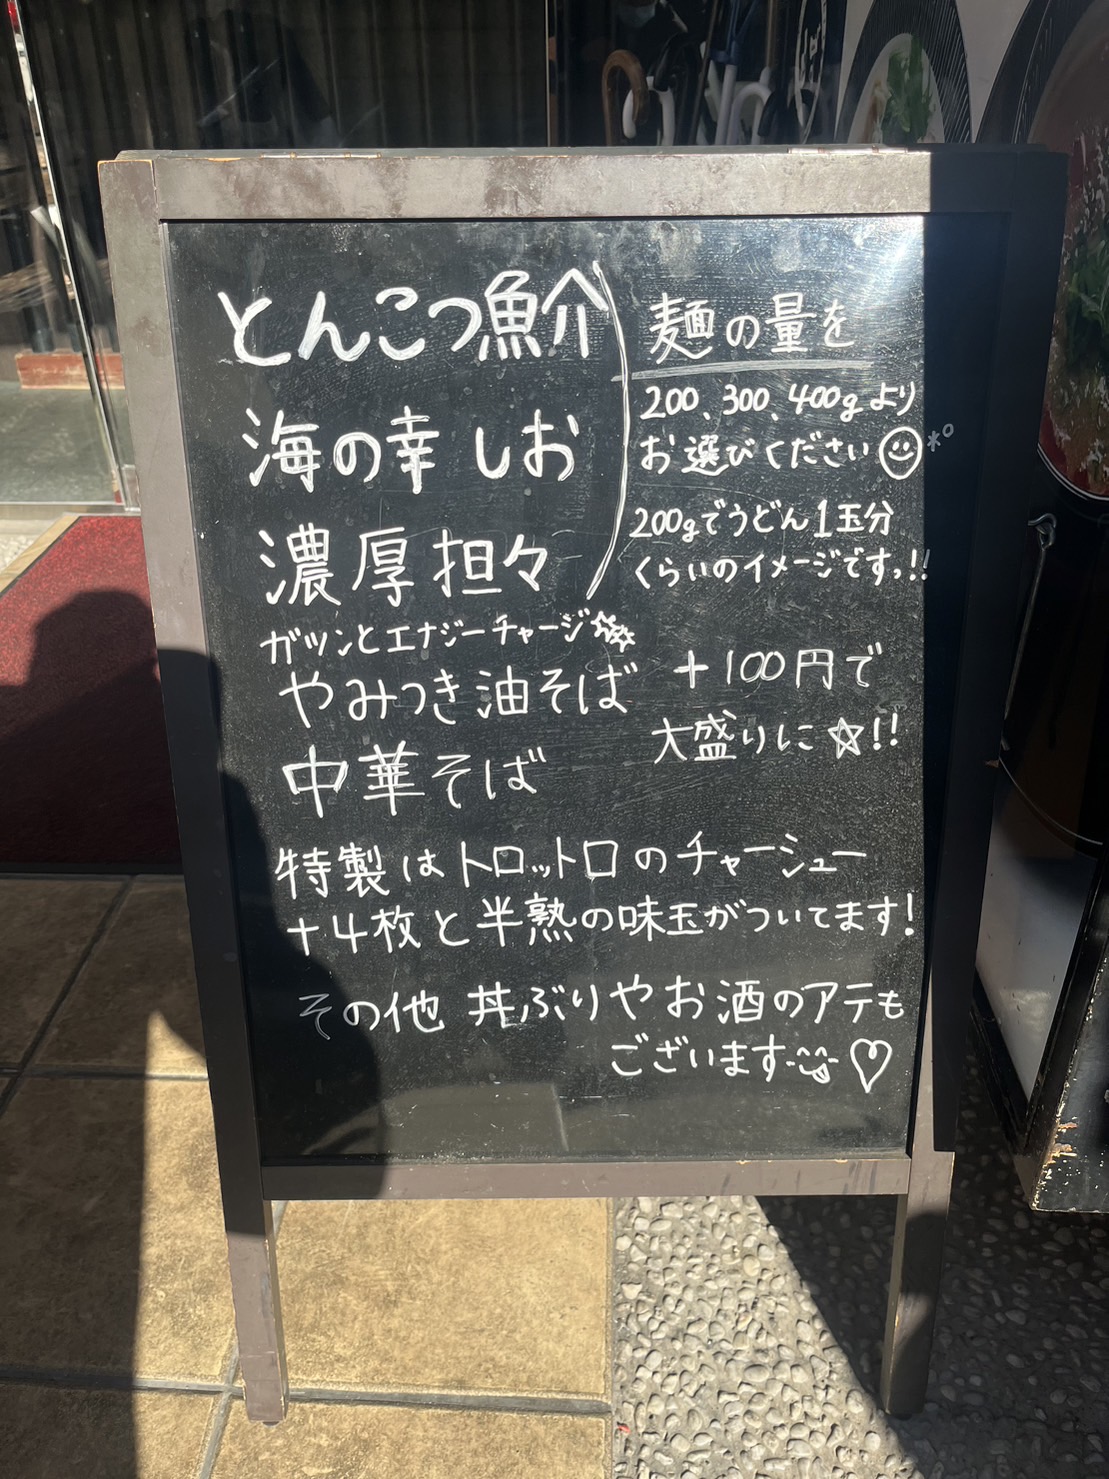 とんこつ魚介
海の幸 しお
濃厚 担々
麺の量を
200、300、400gより
お選びください
200gでうどん1玉分
くらいのイメージですっ!!
ガツンとエナジーチャージ
やみつき油そば
中華そば
+100円で
大盛りに☆!!
特製はトロットロのチャーシュー
+4枚と半熟の味玉がついてます!
その他 丼ぶりやお酒のアテも
ございます♡